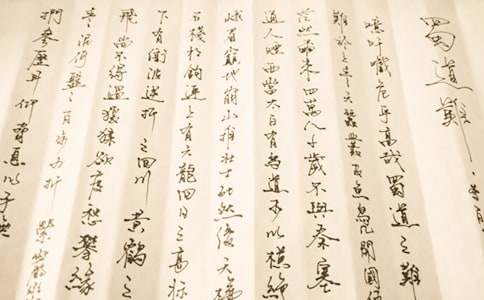 蜀道難 李白
噫吁嚱危乎高哉蜀道之難
難於上青天蠶叢及魚鳧開國
茫然爾來四萬八千歲不與秦塞
通人煙西當太白有鳥道可以橫絕
峨眉巔地崩山摧壯士死然後天梯
石棧相鉤連上有六龍回日之高標
下有衝波逆折之回川黃鶴之
飛尚不得過猿猱欲度愁攀緣
青泥何盤盤百步九折縈巖
捫參歷井仰脅息以手